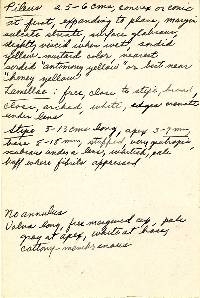 Pileus 2.5-6 cms, convex or conic
at first, expanding to plane, margin
sulcate striate, surface glabrous,
slightly viscid when wet, sordid
yellow-mustard color nearest
sordid "antimony yellow" or but near
"honey yellow"
Lamellae: free, close to stipe, broad,
close, arched, white, edges
under lens
Stipe 5-13 cms long, apex 3-9 mm,
base 5-15 mm, stuffed, very
scabrous under a lens, whitish, pale
buff where fibrils appressed
No annulus
Volva long, free margined cup, pale
gray at apex, white at base,
cottony-membranous